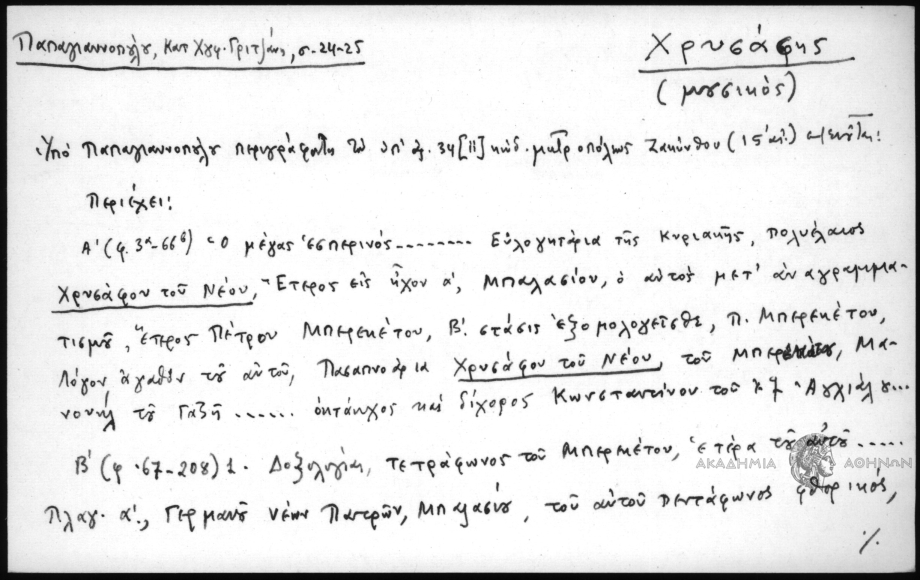 Παπαγιαννοπούλου, Κατ Χγφ. Γριτσάνη, σ. 24-25
Χρυσάφης
(μουσικός)
Ὑπό Παπαγιαννοπούλου περιγράφεται τῷ ὑπ' ἀρ. 34[11] κώδ. μητροπόλεως Ζακύνθου (15' αἰ.)
Περιέχει:
Α' (φ. 3α-66β) Ὁ μέγας ἑσπερινός........ Εὐλογητάρια τῆς Κυριακῆς, πολυέλαιος
Χρυσάφου τοῦ Νέου, Ἕτερος εἰς ἦχον α', Μπαλασίου, ὁ αὐτός μετ' ἀναγραμμα-
τισμοῦ, ἕτερος Πέτρου Μπερεκέτου, Β'. στάσις ἐξομολογεῖσθε, Π. Μπερεκέτου,
Λόγον ἀγαθόν τοῦ αὐτοῦ, Πασαπνοάρια Χρυσάφου τοῦ Νέου, τοῦ Μπερεκέτου, Μα-
νουήλ τοῦ Γαζῆ ...... ὀκτάηχος καί δίχορος Κωνσταντίνου τοῦ ἐξ Ἀγχιάλου...
Β' (φ. 67-208) 1. Δοξολογίαι, τετράφωνος τοῦ Μπερεκέτου, ἑτέρα τοῦ αὐτοῦ.....
πλαγ. α', Γερμανοῦ νέων Πατρῶν, Μπαλασίου, τοῦ αὐτοῦ πεντάφωνος φθορικός,
ΑΚΑΔΗΜΙΑ ΑΘΗΝΩΝ
·/.